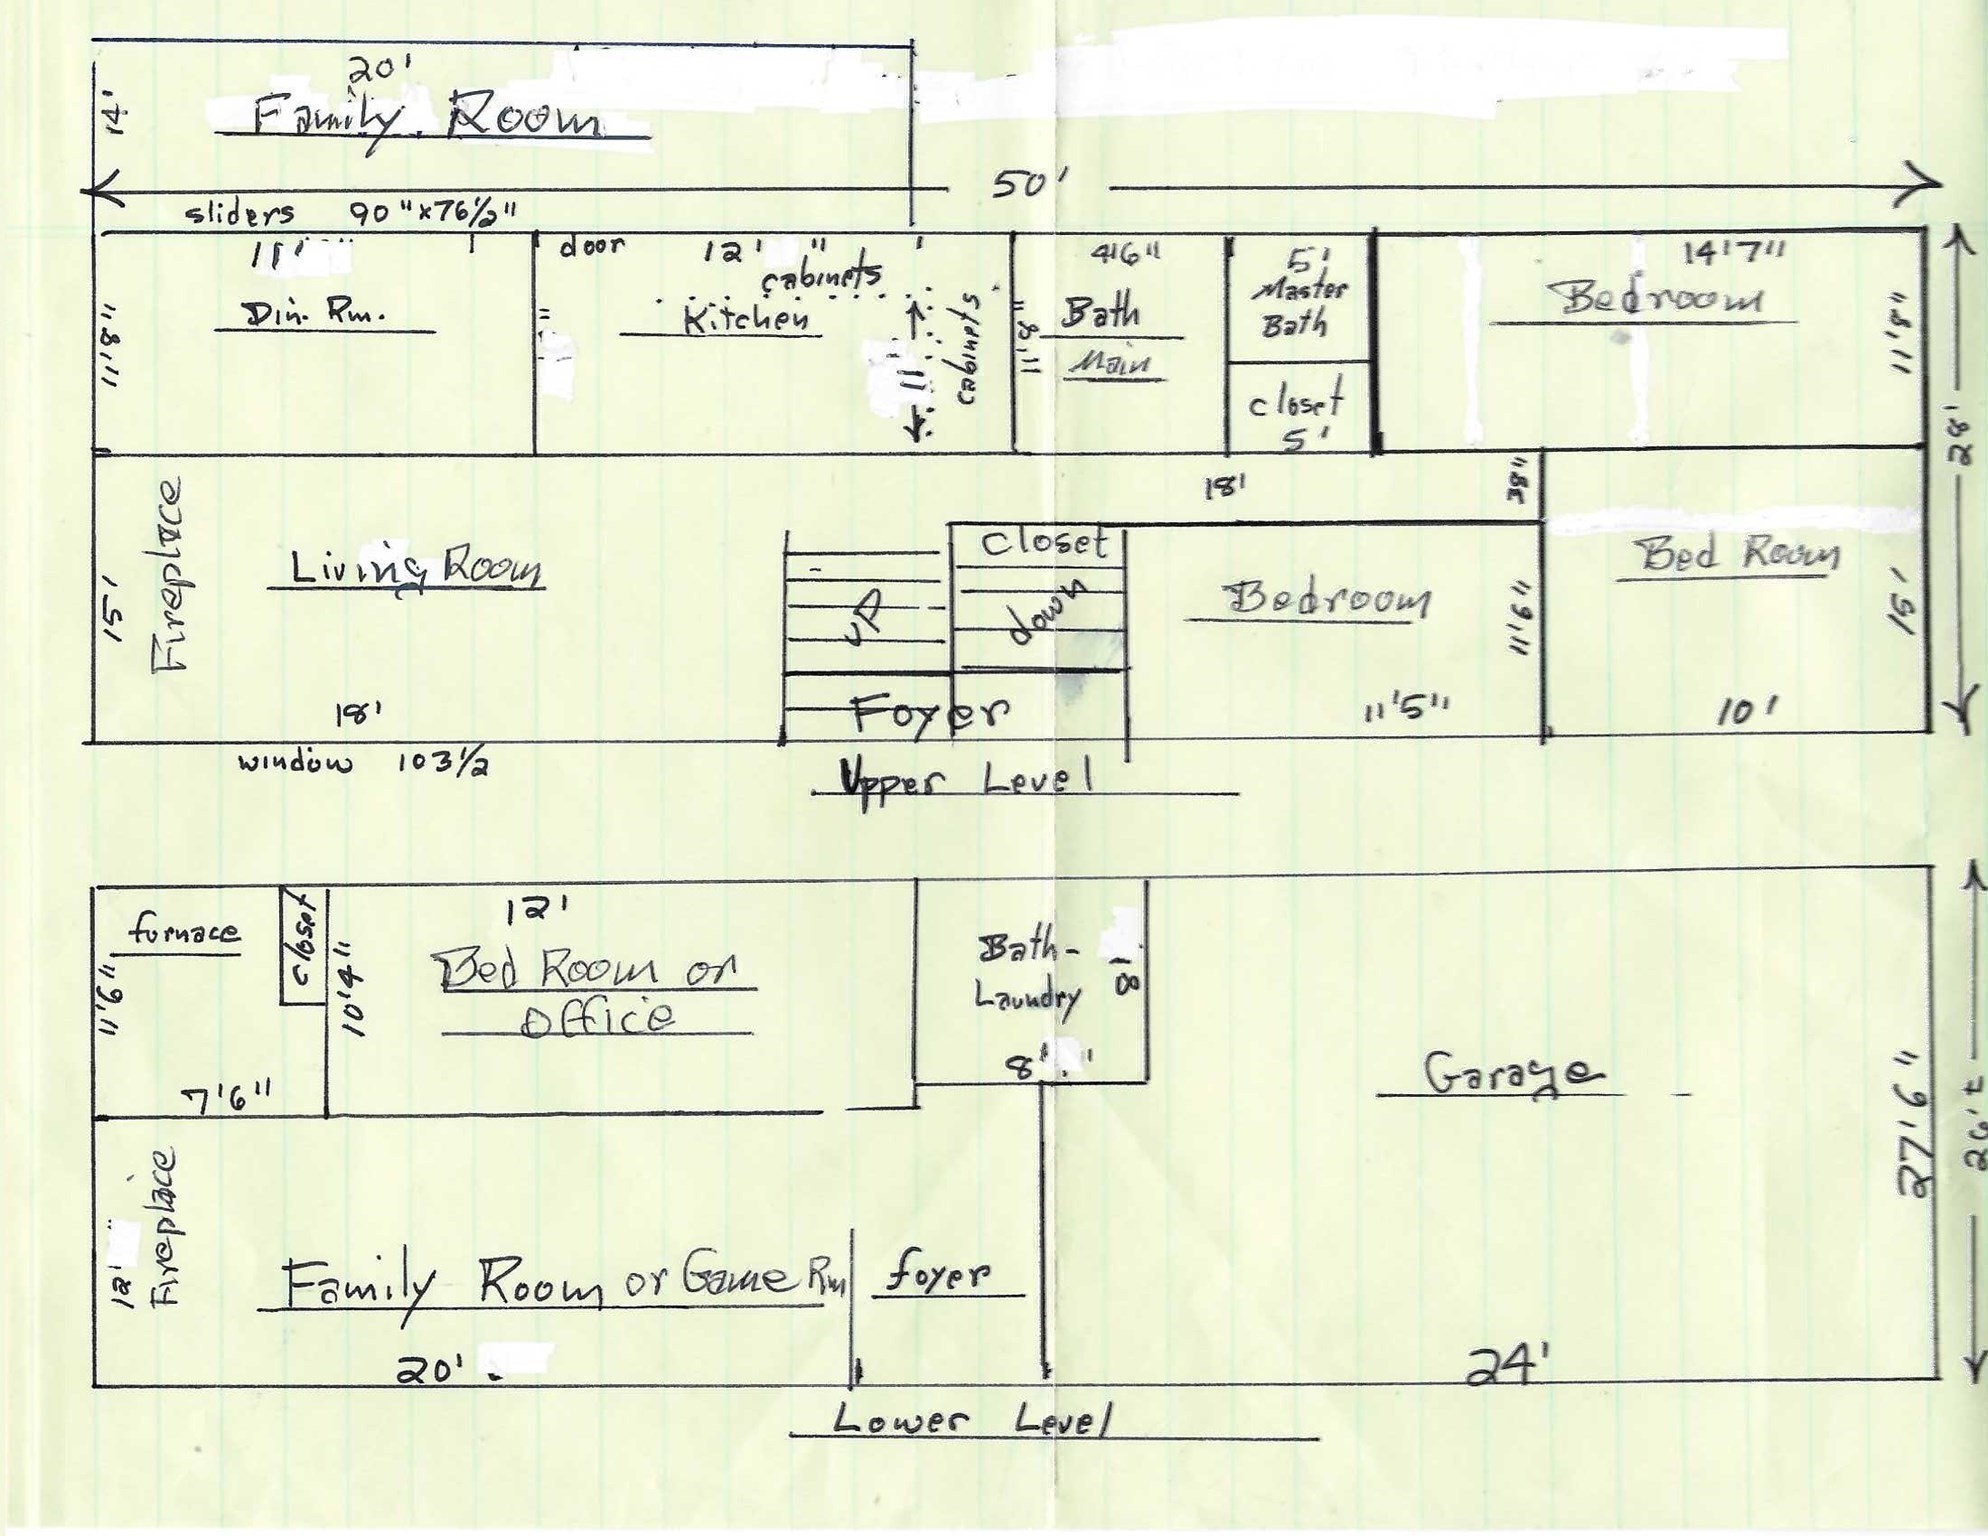 20'
14'
Family Room
50'
sliders 90"x76½"
11'
door
12' "
cabinets
4'6"
5'
14'7"
Din. Rm.
11'8"
Kitchen
11'
cabinets
11'8"
Bath
Main
Master
Bath
closet
5'
Bedroom
11'8"
28'
18'
38"
Fireplace
15'
Living Room
18'
window 103½
UP
closet
down
Foyer
Bedroom
11'9"
11'5"
Bed Room
15'
10'
Upper Level
furnace
closet
11'6"
7'6"
12'
10'4"
Bed Room or
office
Bath-
Laundry
8'
8' "
Garage
27'6"
26'
24'
Fireplace
12'
Family Room or Game Rm
foyer
20'
Lower Level